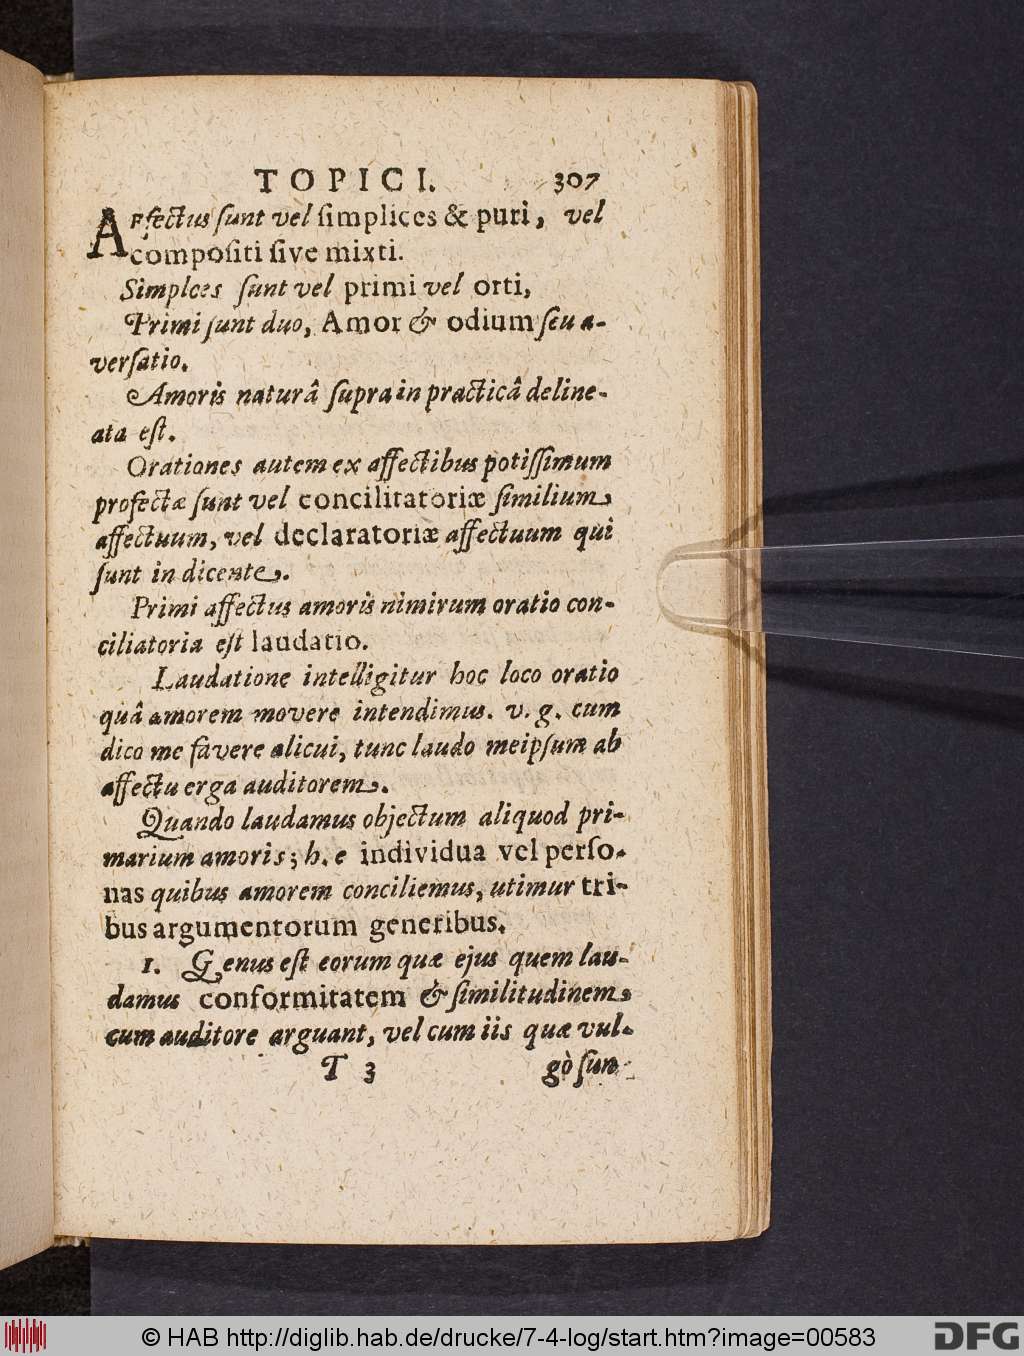 TOPICI. 307
AFfectus sunt vel simplices & puri, vel
compositi sive mixti.
Simplces sunt vel primi vel orti,
Primi sunt duo, Amor & odium seu a-
versatio.
Amoris naturâ supra in practicâ deline-
ata est.
Orationes autem ex affectibus potissimum
profectæ sunt vel concilitatoriæ similium
affectuum, vel declaratoriæ affectuum qui
sunt in dicente.
Primi affectus amoris nimirum oratio con-
ciliatoria est laudatio.
Laudatione intelligitur hoc loco oratio
quâ amorem movere intendimus. v. g. cum
dico me favere alicui, tunc laudo meipsum ab
affectu erga auditorem.
Quando laudamus objectum aliquod pri-
marium amoris; h. e individua vel perso-
nas quibus amorem conciliemus, utimur tri-
bus argumentorum generibus.
1. Genus est eorum quæ ejus quem lau-
damus conformitatem & similitudinem
cum auditore arguant, vel cum iis quæ vul-
T 3 gò sun
© HAB http://diglib.hab.de/drucke/7-4-log/start.htm?image=00583
DFG